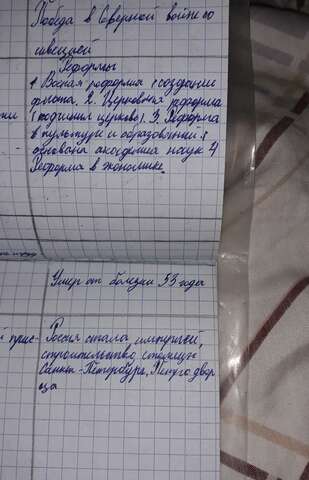 Победа в Северной войне со
швецией
Реформы
1 Военая реформа (создание
флота. 2. Церковная реформа
(подчинил церковь). 3. Реформа
в культуре и образовании (
основана академия наук 4)
Реформа в экономике.
Умер от болезни 53 года
Россия стала империей,
строительство столицы
Санкт-Петербурга,
двор
ца